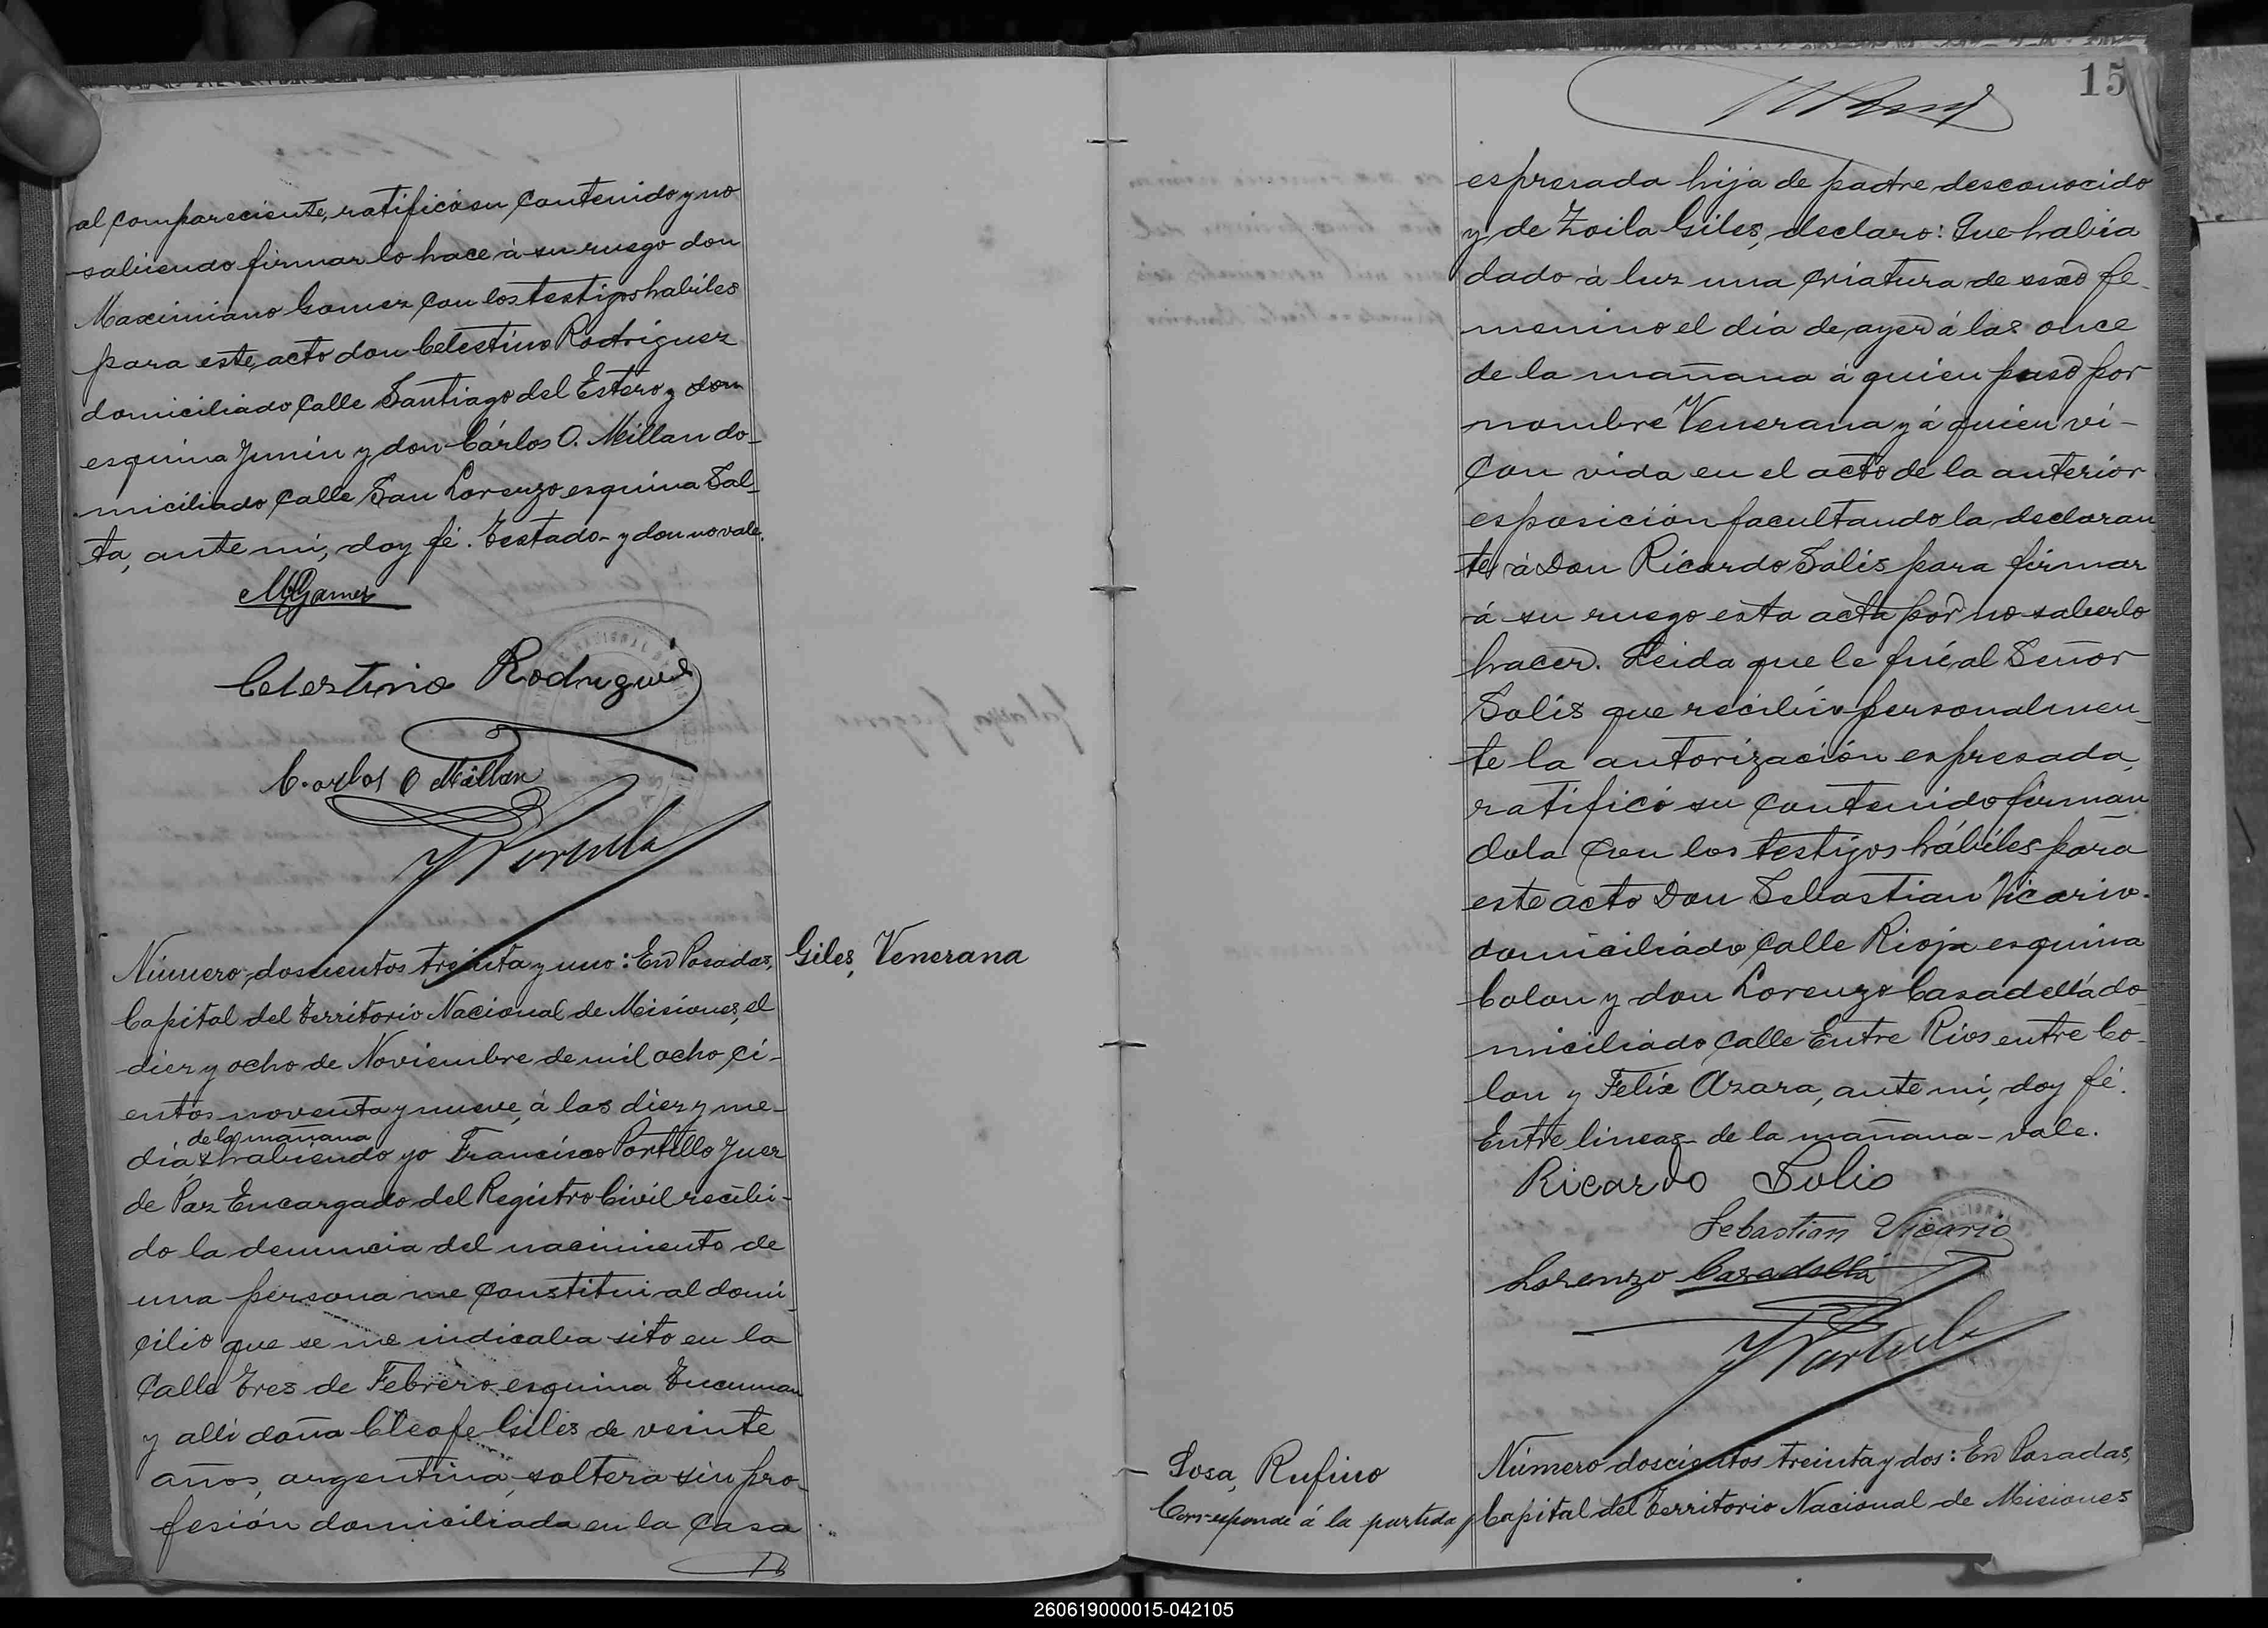 al compareciente, ratificó su contenido y no
sabiendo firmar lo hace á su ruego don
Maximiano Gomez con los testigos habiles
para este acto don Celestino Rodriguez
domiciliado calle Santiago del Estero y don
esquina Junin y don Cárlos O. Millan do-
miciliado calle San Lorenzo esquina Sal-
ta, ante mi, doy fé. Testado - y don no vale.
MGomez
Celestino Rodriguez
Carlos O Millan
FPortillo
Número doscientos treinta y uno: En Posadas,
Giles, Venerana
Capital del Territorio Nacional de Misiones, el
diez y ocho de Noviembre de mil ocho ci-
entos noventa y nueve, á las diez y me-
de la mañana
dia habiendo yo Francisco Portillo Juez
de Paz Encargado del Registro Civil recibi-
do la denuncia del nacimiento de
una persona me constitui al domi-
cilio que se me indicaba sito en la
calle Tres de Febrero esquina Tucuman
y alli doña Cleofe Giles de veinte
años, argentina, soltera sin pro-
fesión domiciliada en la casa
15
espresada hija de padre desconocido
y de Zoila Giles, declaro: Que habia
dado á luz una criatura de sexo fe-
menino el día de ayer á las once
de la mañana á quien puso por
nombre Venerana y á quien vi
con vida en el acto de la anterior
esposición facultando la declaran
te á Don Ricardo Solis para firmar
á su ruego esta acta por no saberlo
hacer. Leida que le fué al Señor
Solis que recibió personalmen-
te la autorización espresada,
ratificó su contenido firman
dola con los testigos hábiles para
este acto Don Sebastian Vicario
domiciliado calle Rioja esquina
Colon y don Lorenzo Casadellá do-
miciliado calle Entre Rios entre Co-
lon y Felix Azara, ante mi, doy fé.
Entre lineas - de la mañana - vale.
Ricardo Solis
Sebastian Vicario
Lorenzo Casadellá
FPortillo
Sosa, Rufino
Corresponde á la partida
Número doscientos treinta y dos: En Posadas,
Capital del Territorio Nacional de Misiones
260619000015-042105